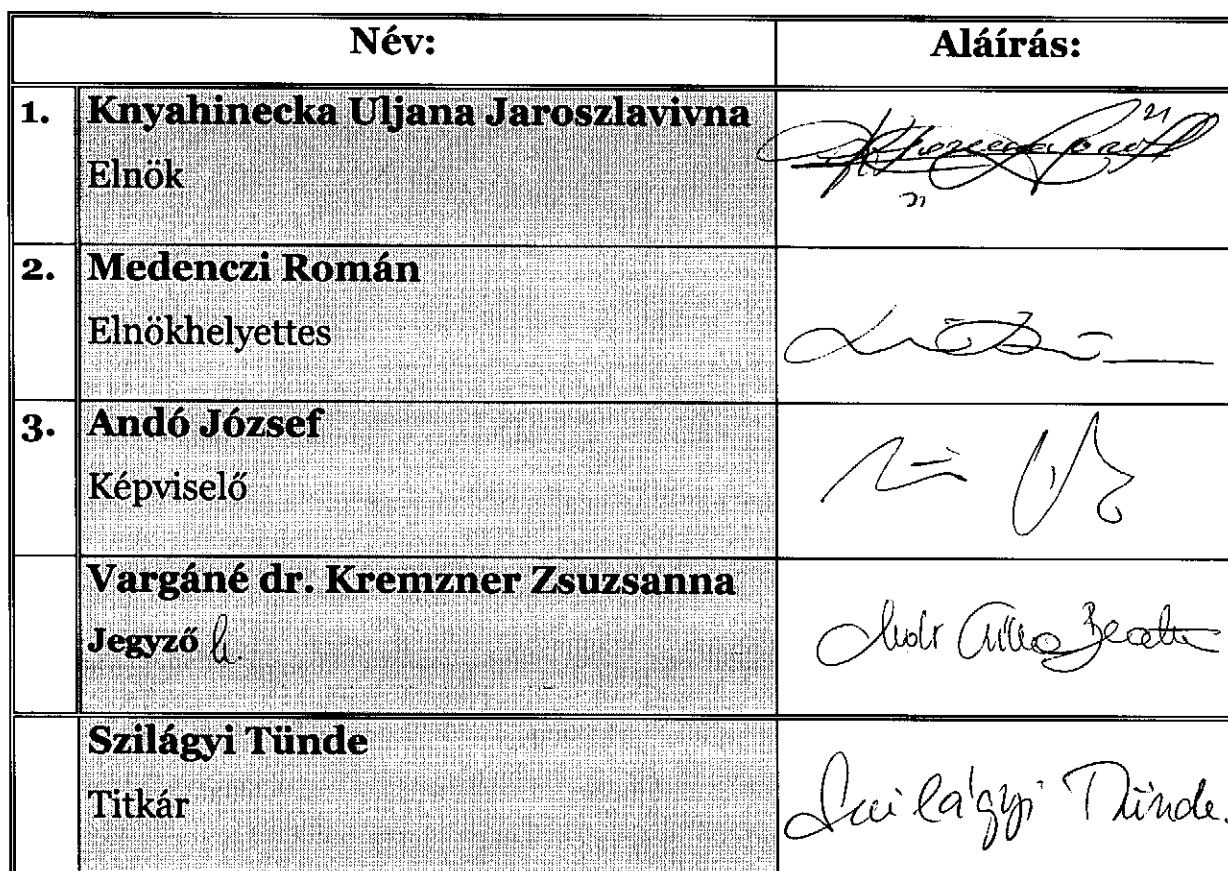 Név: Aláírás:
1. Knyahinecka Uljana Jaroszlavivna
Elnök
2. Medenczi Román
Elnökhelyettes
3. Andó József
Képviselő
Vargáné dr. Kremzner Zsuzsanna
Jegyző h.
Szilágyi Tünde
Titkár
Szilágyi Tünde.